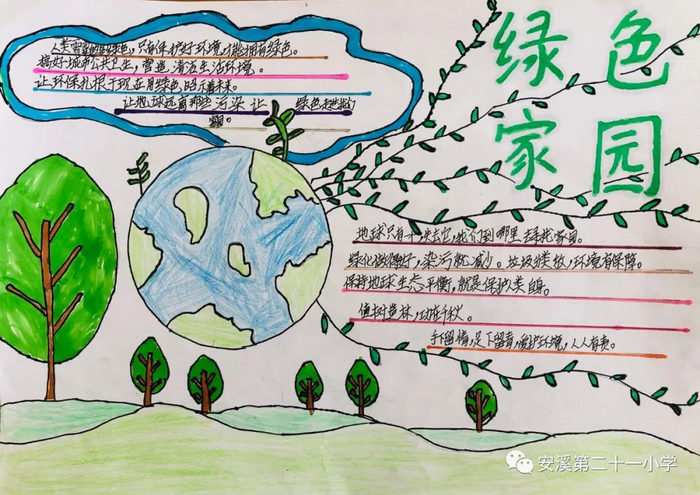 绿色
家园
人类需要绿色，只有保护好环境，才能拥有绿色。
搞好城市公共卫生，营造清洁生活环境。
让环保扎根于现在，用绿色昭示着未来。
让地球远离那些污染 让 绿色走进
地球只有一个，失去它，我们到哪里去寻找家园。
绿化做得好，染污就减少。垃圾分类放，环境有保障。
保持地球生态平衡，就是保护人类自身。
植树造林，功在千秋。
手留情，足下留青，爱护环境，人人有责。
安溪第二十一小学